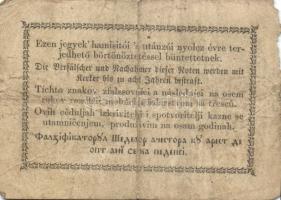 Ezen jegyek' hamisitói 's utánzói nyolcz évre ter-
jedhető börtönöztetéssel büntettetnek.
Die Verfälscher und Nachahmer dieser Noten werden mit
Kerker bis zu acht Jahren bestraft.
Tichto znakov, zfalssovaici a následaici na osem
Ovih ceduljah izkrivitelji i spotvoritelji kazne se
utamničenjem, produživim na osam godinah.
Фалзіфікаторꙋл Шеделор ачестора кꙋ арест де
опт ані съ ва педепсі.